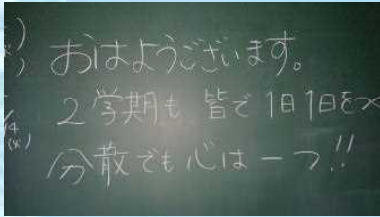 おはようございます。
2学期も 皆で1日1日を
分散でも心は一つ!!